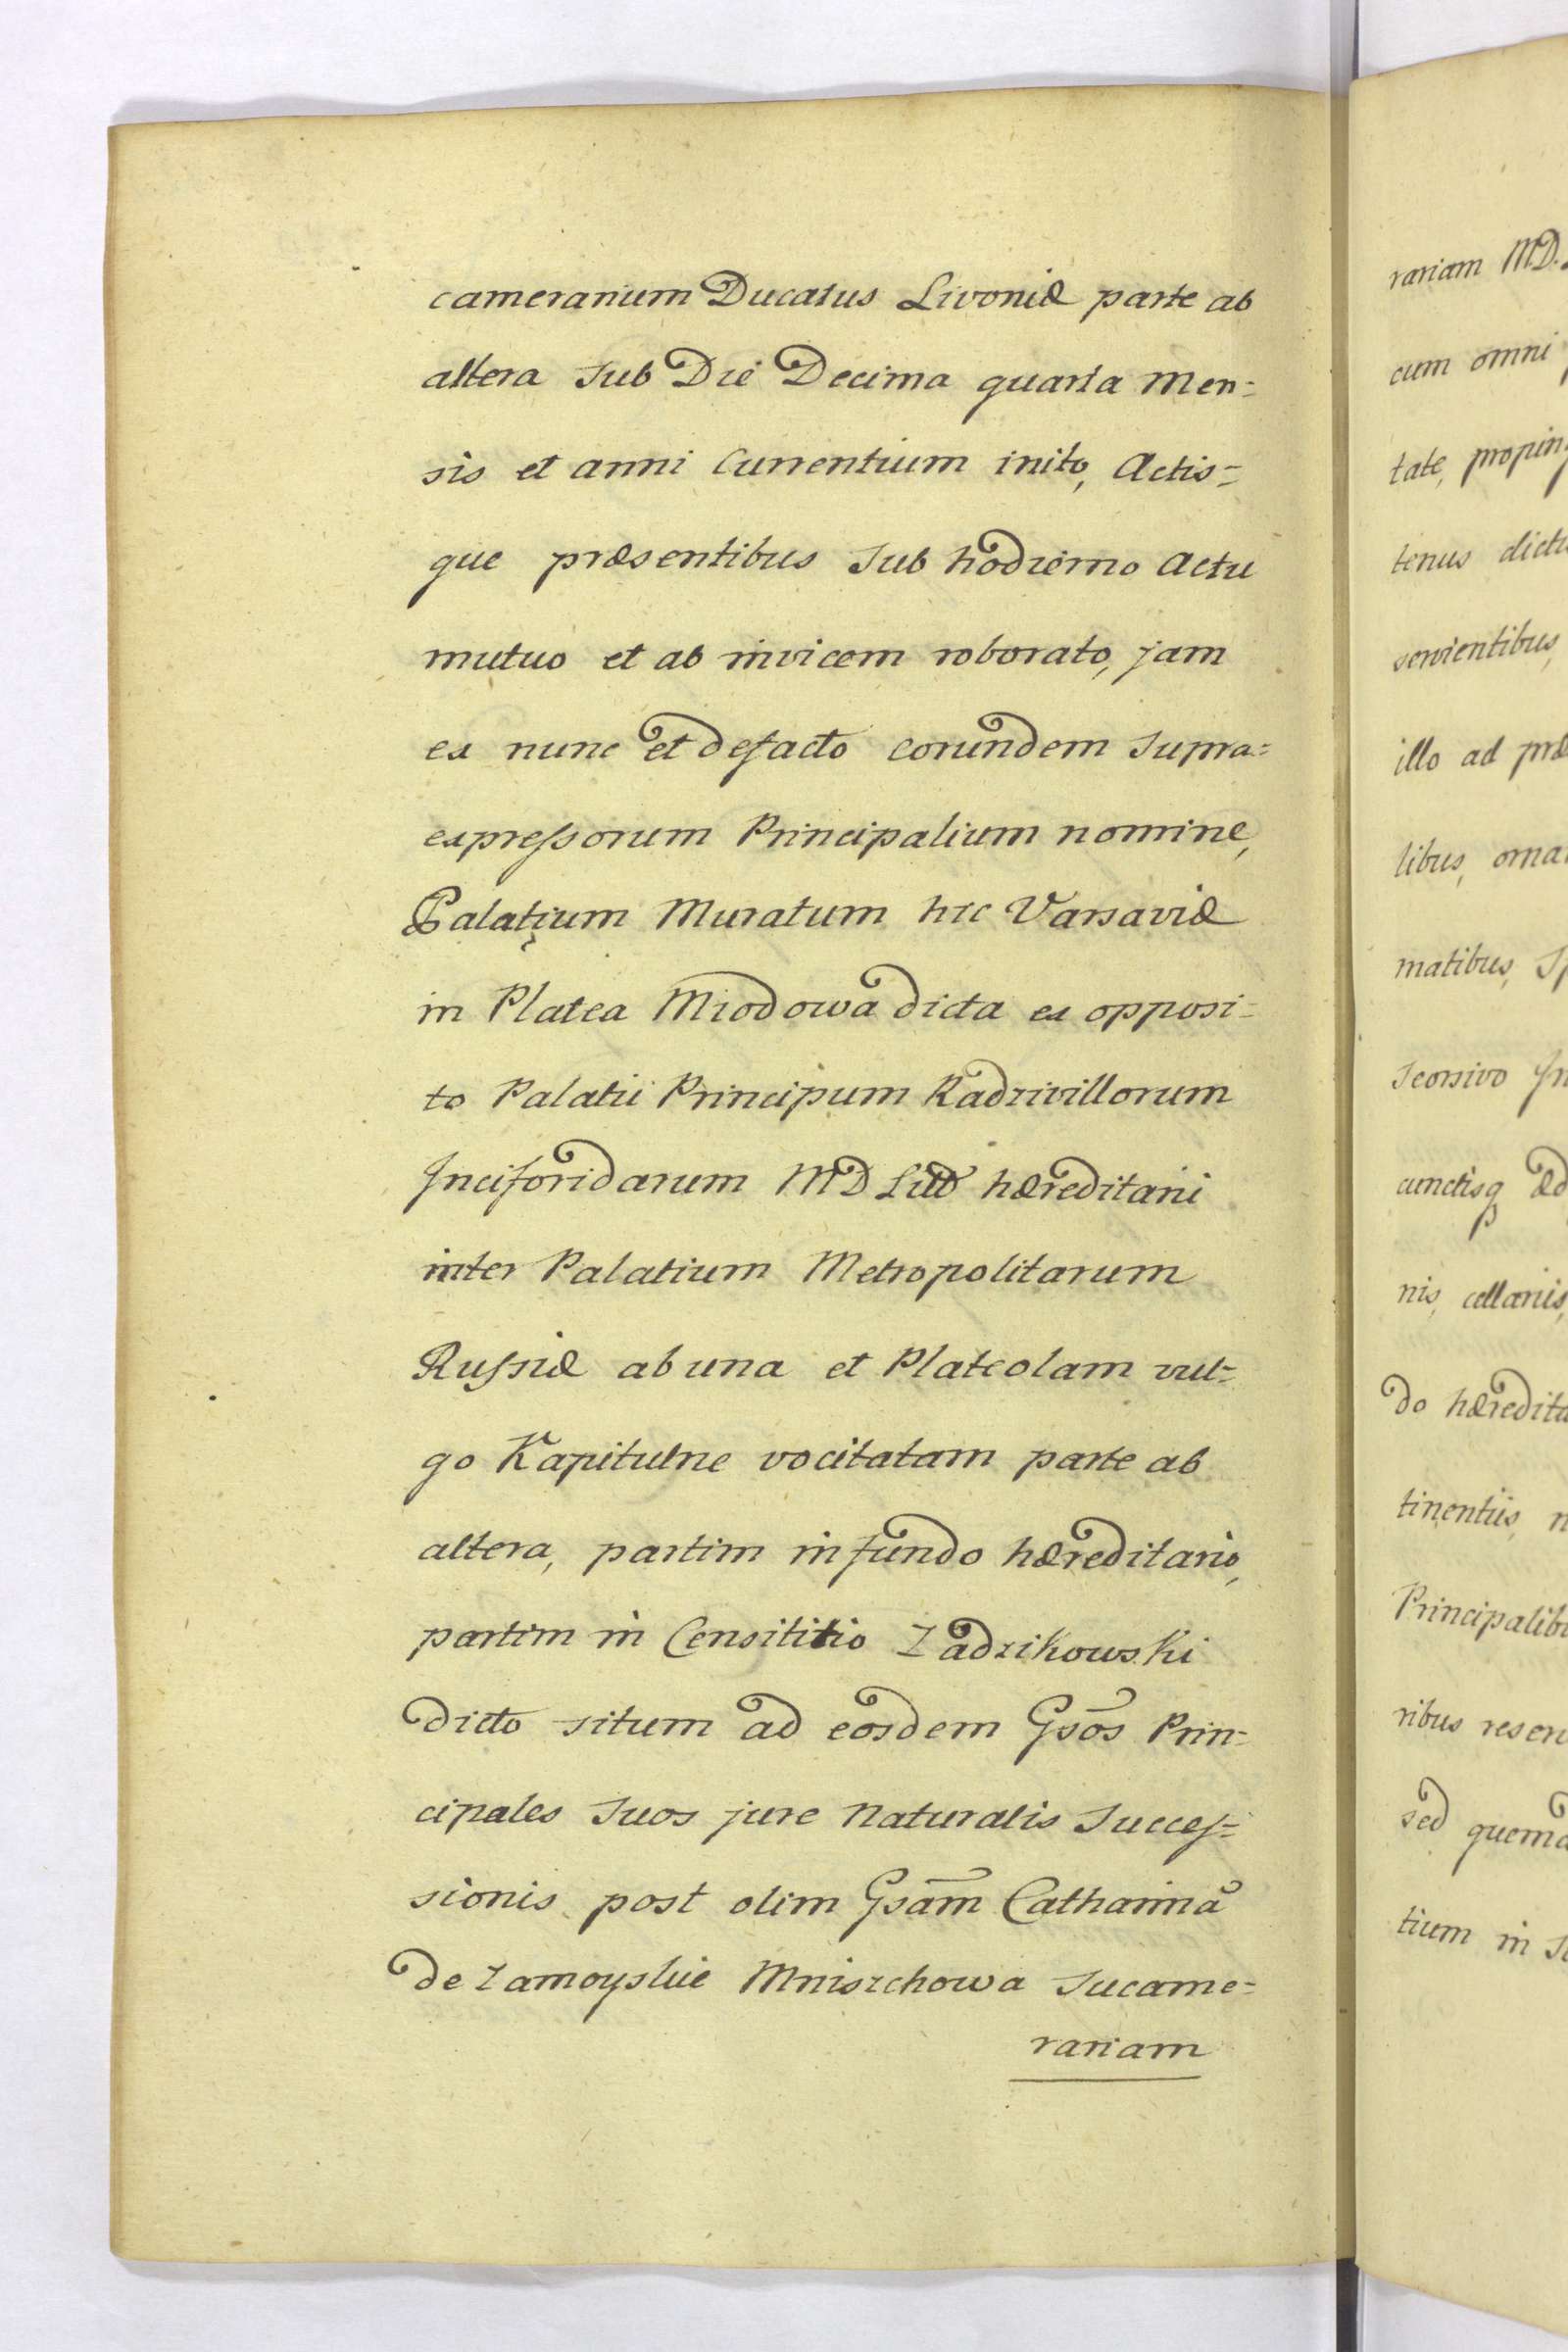 camerarium Ducatus Livoniæ parte ab
altera Sub Die Decima quarta Men=
sis et anni Currentium inito, Actis=
que præsentibus Sub hodierno Actu
mutuo et ab invicem roborato, jam
ex nunc et defacto eorundem Supra=
expressorum Principalium nomine,
Palatium Muratum hic Varsaviæ
in Platea Miodowa dicta ex opposi=
to Palatii Principum Radzivillorum
Inciforidarum MD Litt hæreditarii
inter Palatium Metropolitarum
Russiæ ab una et Plateolam vul=
go Kapitulne vocitatam parte ab
altera, partim in fundo hæreditario,
partim in Censititio Zadzikowski
dicto situm ad eosdem Gsōs Prin=
cipales Suos jure Naturalis Succes=
sionis post olim Gsam̄ Catharina
de Zamoyskie Mniszchowa Sucame=
rariam
rariam MD.
cum omni
tate, propin
tenus dict
servientibus,
illo ad præ
libus, orna
matibus, Sp
Scorsivo In
cunctisq æd
nis, cellariis,
do hæredita
tinentiis, n
Principalib
ribus reser
sed quema
tium in S